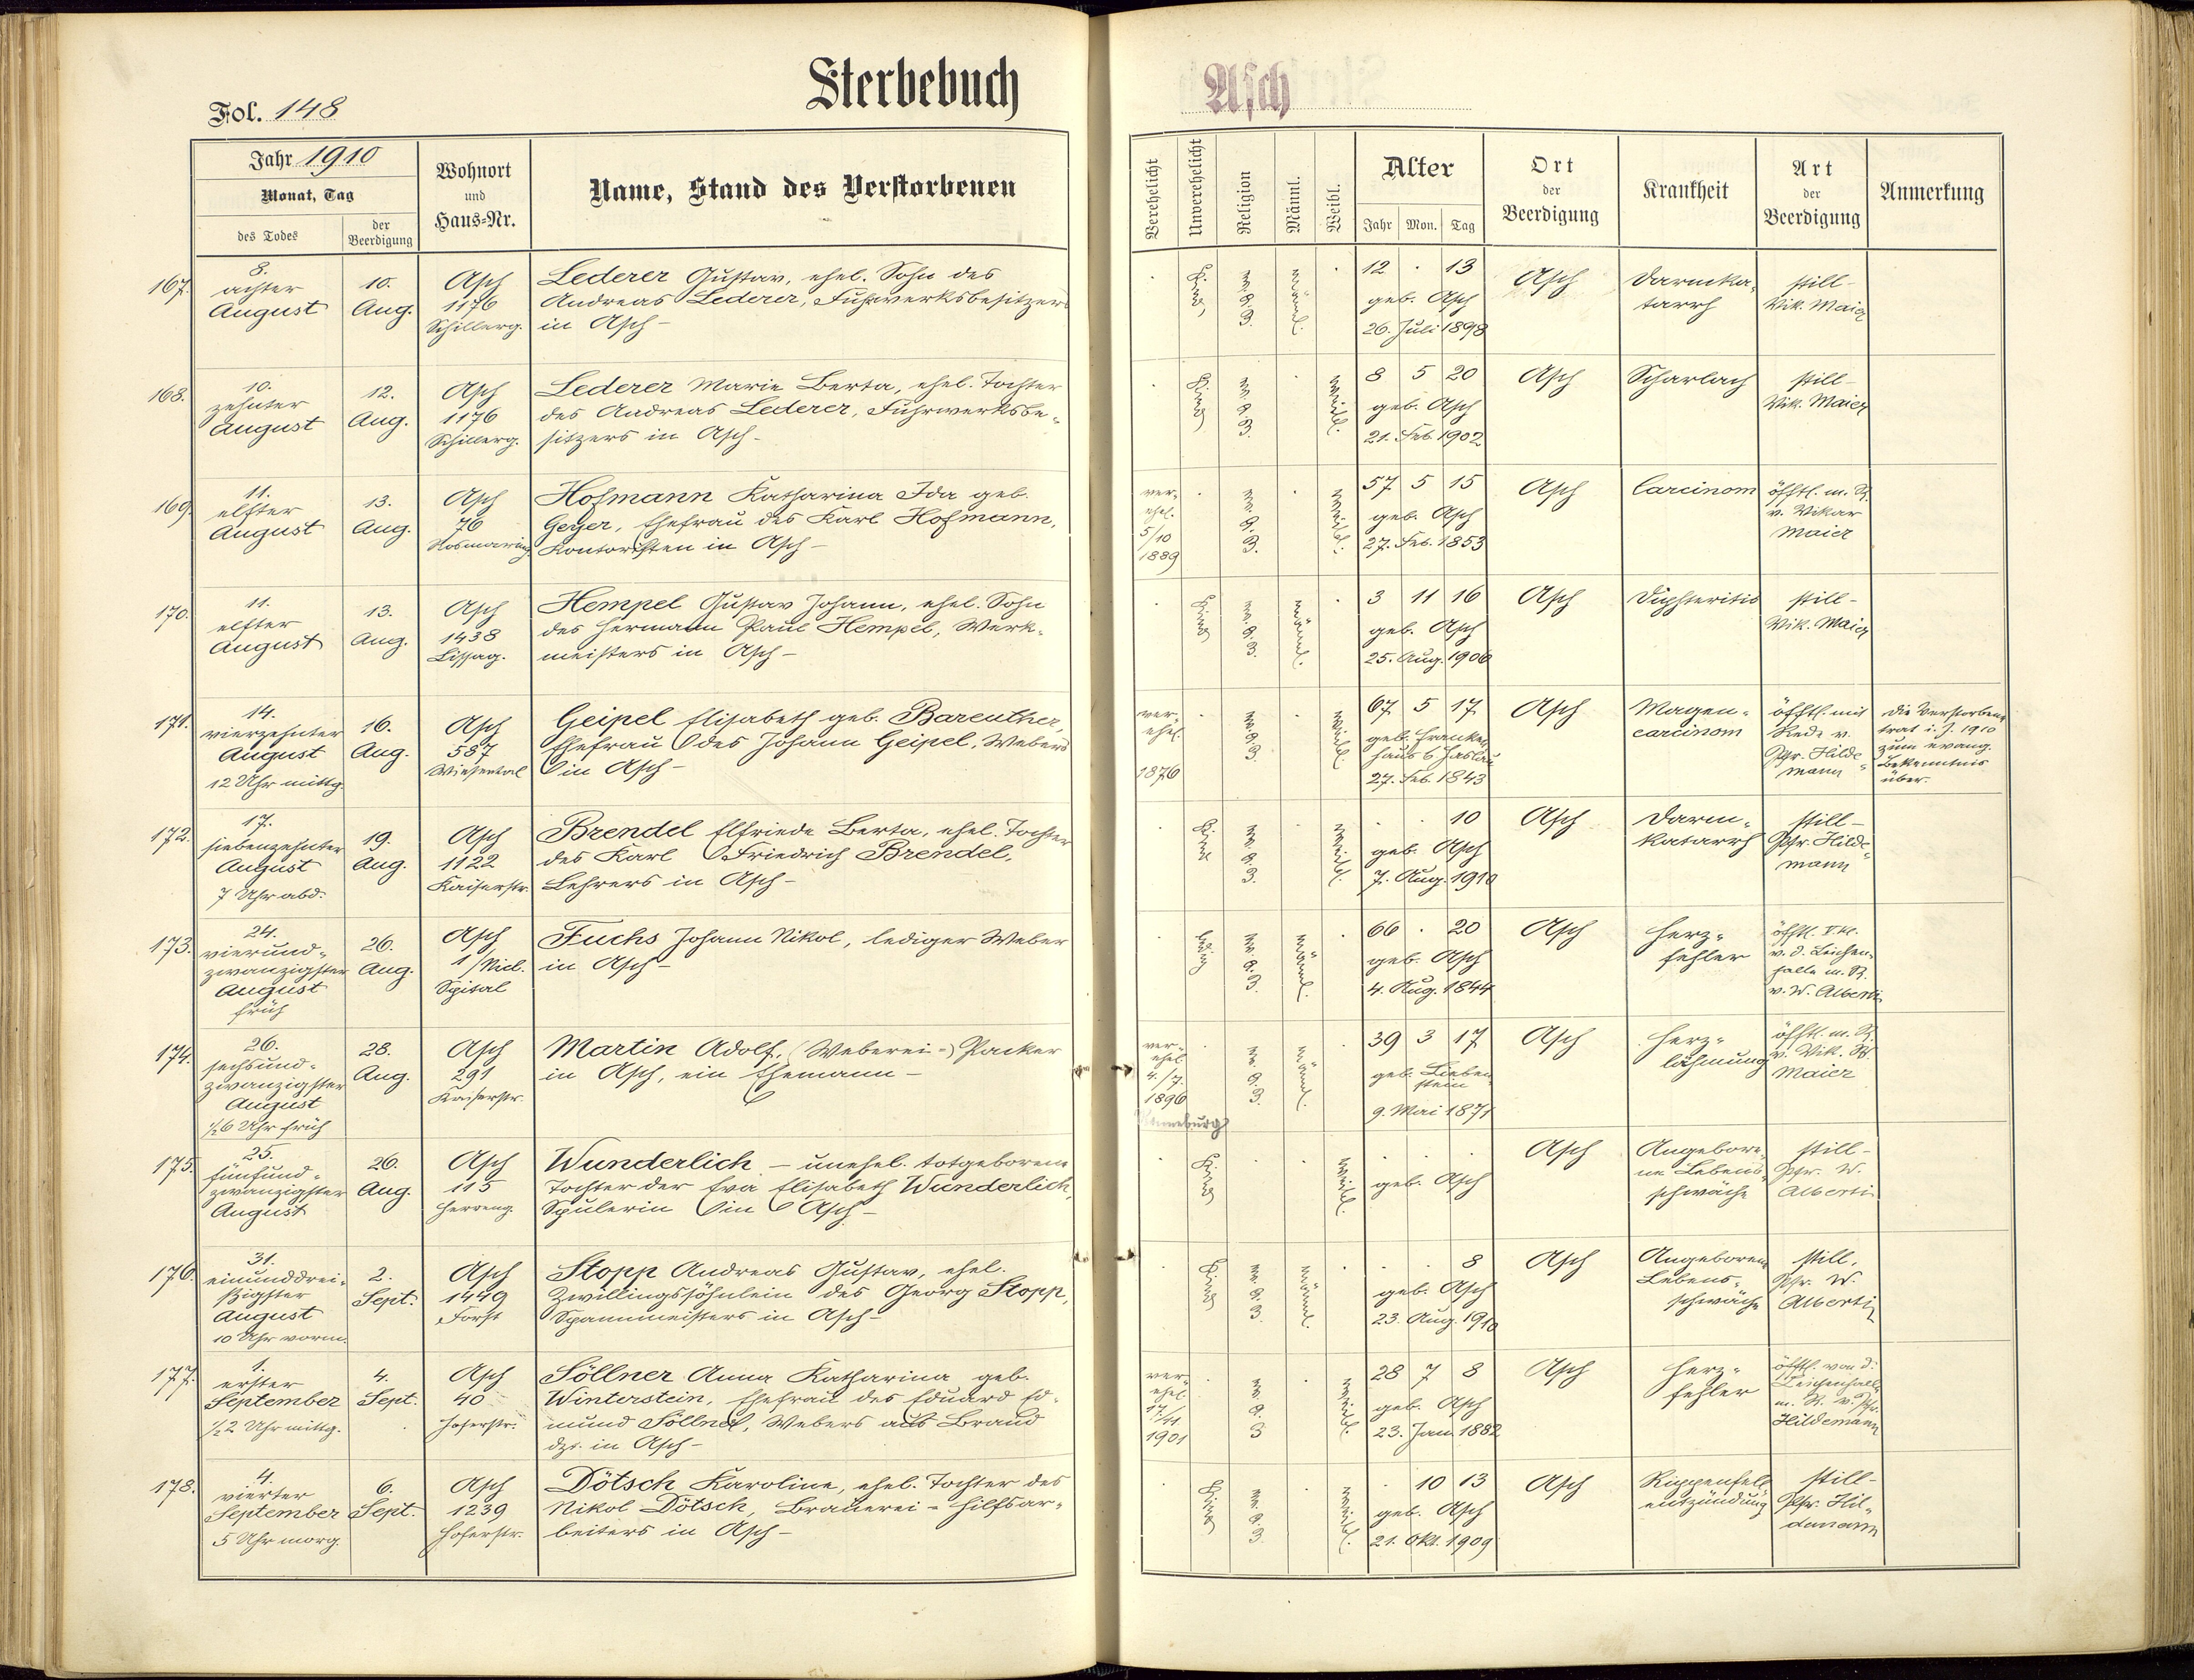 Sterbebuch
Asch
Fol. 148
Jahr 1910
Monat, Tag
des Todes
der Beerdigung
Wohnort
und
Haus-Nr.
Name, Stand des Verstorbenen
Verehelicht
Unverehelicht
Religion
Männl.
Weibl.
Alter
Jahr Mon. Tag
Ort
der
Beerdigung
Krankheit
Art
der
Beerdigung
Anmerkung
167.
8.
achter
August
10.
Aug.
Asch
1176
Schillerg.
Lederer Gustav, ehel. Sohn des
Andreas Lederer, Fuhrwerksbesitzers
in Asch-
Kind
männl.
12 . 13
geb. Asch
26. Juli 1898
Asch
Darmka-
tarrh
still-
Vik. Maier
168.
10.
zehnter
August
12.
Aug.
Asch
1176
Schillerg.
Lederer Marie Berta, ehel. Tochter
des Andreas Lederer, Fuhrwerksbe-
sitzers in Asch-
Kind
weibl.
8 5 20
geb. Asch
21. Feb. 1902
Asch
Scharlach
still-
Vik. Maier
169.
11.
elfter
August
13.
Aug.
Asch
76
Rosmaring.
Hofmann Katharina Ida geb.
Geyer, Ehefrau des Karl Hofmann,
Kontoristen in Asch-
ver-
ehel.
5/10
1889
weibl.
57 5 15
geb. Asch
27. Feb. 1853
Asch
Carcinom
öfftl. m. R.
v. Vikar
Maier
170.
11.
elfter
August
13.
Aug.
Asch
1438
Lissag.
Hempel Gustav Johann, ehel. Sohn
des Hermann Paul Hempel, Werk-
meisters in Asch-
Kind
männl.
3 11 16
geb. Asch
25. Aug. 1906
Asch
Diphteritis
still-
Vik. Maier
171.
14.
vierzehnter
August
12 Uhr mittg.
16.
Aug.
Asch
587
Wiesental
Geipel Elisabeth geb. Bareuther,
Ehefrau des Johann Geipel, Webers
in Asch-
ver-
ehel.
1876
weibl.
67 5 17
geb. Franken
haus b Haslau
27. Feb. 1843
Asch
Magen-
carcinom
öfftl. mit
Rede v.
Pfr. Hilde-
mann
Die Verstorbene
trat i. J. 1910
zum evang.
Bekenntnis
über.
172.
17.
siebenzehnter
August
7 Uhr abd.
19.
Aug.
Asch
1122
Kaiserstr.
Brendel Elfriede Berta, ehel. Tochter
des Karl Friedrich Brendel,
Lehrers in Asch-
Kind
weibl.
. . 10
geb. Asch
7. Aug. 1910
Asch
Darm-
katarrh
still-
Pfr. Hilde-
mann
173.
24.
vierund-
zwanzigster
August
früh
26.
Aug.
Asch
1/Nicl.
Spital
Fuchs Johann Nikol, lediger Weber
in Asch-
ledig
männl.
66 . 20
geb. Asch
4. Aug. 1844
Asch
Herz-
fehler
v. d. Leichen-
halle m. R.
v. W. Alberti
174.
26.
sechsund-
zwanzigster
August
½6 Uhr früh
28.
Aug.
Asch
291
Kaiserstr.
Martin Adolf, (Weberei-) Packer
in Asch, ein Ehemann-
ver-
ehel.
4./7.
1896
männl.
39 3 17
geb. Lieben
stein
9. Mai 1871
Asch
Herz-
lähmung
öfftl. m. R.
v. Vik. W.
Maier
175.
25.
fünfund-
zwanzigster
August
26.
Aug.
Asch
115
Herreng.
Wunderlich - unehel. totgeborene
Tochter der Eva Elisabeth Wunderlich,
Spulerin in Asch-
Kind
weibl.
geb. Asch
Asch
Angebore-
ne Lebens-
schwäche
still-
Pfr. W.
Alberti
176.
31.
einunddrei-
ßigster
August
10 Uhr vorm.
2.
Sept.
Asch
1449
Forst
Stopp Andreas Gustav, ehel.
Zwillingssöhnlein des Georg Stopp,
Spannmeisters in Asch-
Kind
männl.
. . 8
geb. Asch
23. Aug. 1910
Asch
Angeborene
Lebens-
schwäche
still,
Pfr. W.
Alberti
177.
1.
erster
September
½2 Uhr mittg.
4.
Sept.
Asch
40
Hoferstr.
Söllner Anna Katharina geb.
Winterstein, Ehefrau des Eduard Ed-
mund Söllner, Webers aus Brand
dzt. in Asch-
ver-
ehel.
17/11.
1901
weibl.
28 7 8
geb. Asch
23. Jan. 1882
Asch
Herz-
fehler
öfftl. von d.
Leichenhalle
m. R. v. Pfr.
Hildemann
178.
4.
vierter
September
5 Uhr morg.
6.
Sept.
Asch
1239
Hoferstr.
Dötsch Karoline, ehel. Tochter des
Nikol Dötsch, Brauerei-Hilfsar-
beiters in Asch-
Kind
weibl.
. 10 13
geb. Asch
21. Okt. 1909
Asch
Rippenfell
entzündung
still-
Pfr. Hil-
demann